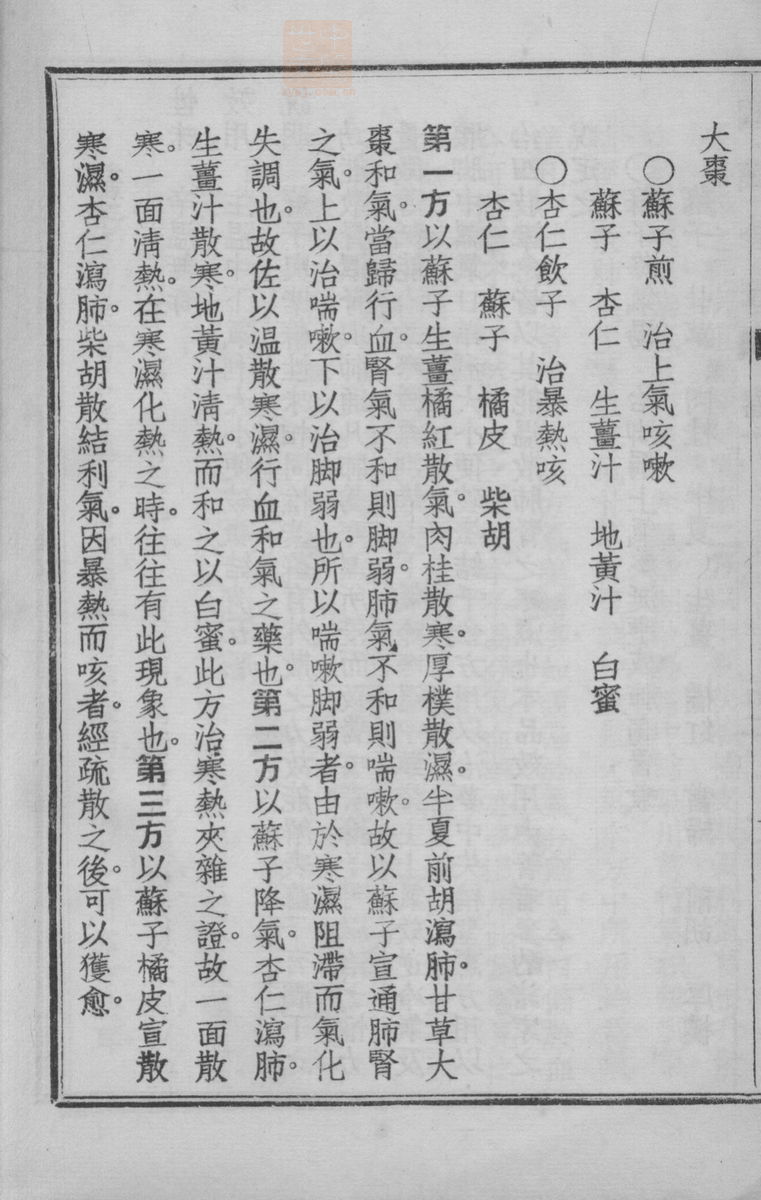 大棗
〇蘇子煎　治上氣咳嗽
蘇子　杏仁　生薑汁　地黃汁　白蜜
〇杏仁飲子　治暴熱咳
杏仁　蘇子　橘皮　柴胡
第一方以蘇子生薑橘紅散氣。肉桂散寒。厚樸散濕。半夏前胡瀉肺。甘草大
棗和氣。當歸行血。腎氣不和則脚弱。肺氣不和則喘嗽。故以蘇子宣通肺腎
之氣。上以治喘嗽。下以治脚弱也。所以喘嗽脚弱者。由於寒濕阻滯而氣化
失調也。故佐以温散寒濕。行血和氣之藥也。第二方以蘇子降氣。杏仁瀉肺。
生薑汁散寒。地黃汁淸熱。而和之以白蜜。此方治寒熱夾雜之證。故一面散
寒。一面淸熱。在寒濕化熱之時。往往有此現象也。第三方以蘇子橘皮宣散
寒濕。杏仁瀉肺。柴胡散結利氣。因暴熱而咳者。經疏散之後。可以獲愈。